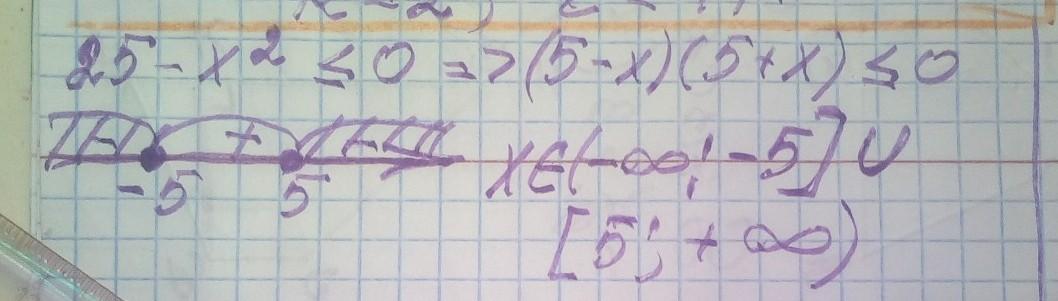 25 - x² ≤ 0 => (5-x)(5+x) ≤ 0
- + -
-5 5
x∈(-∞; -5] ∪
[5; + ∞)